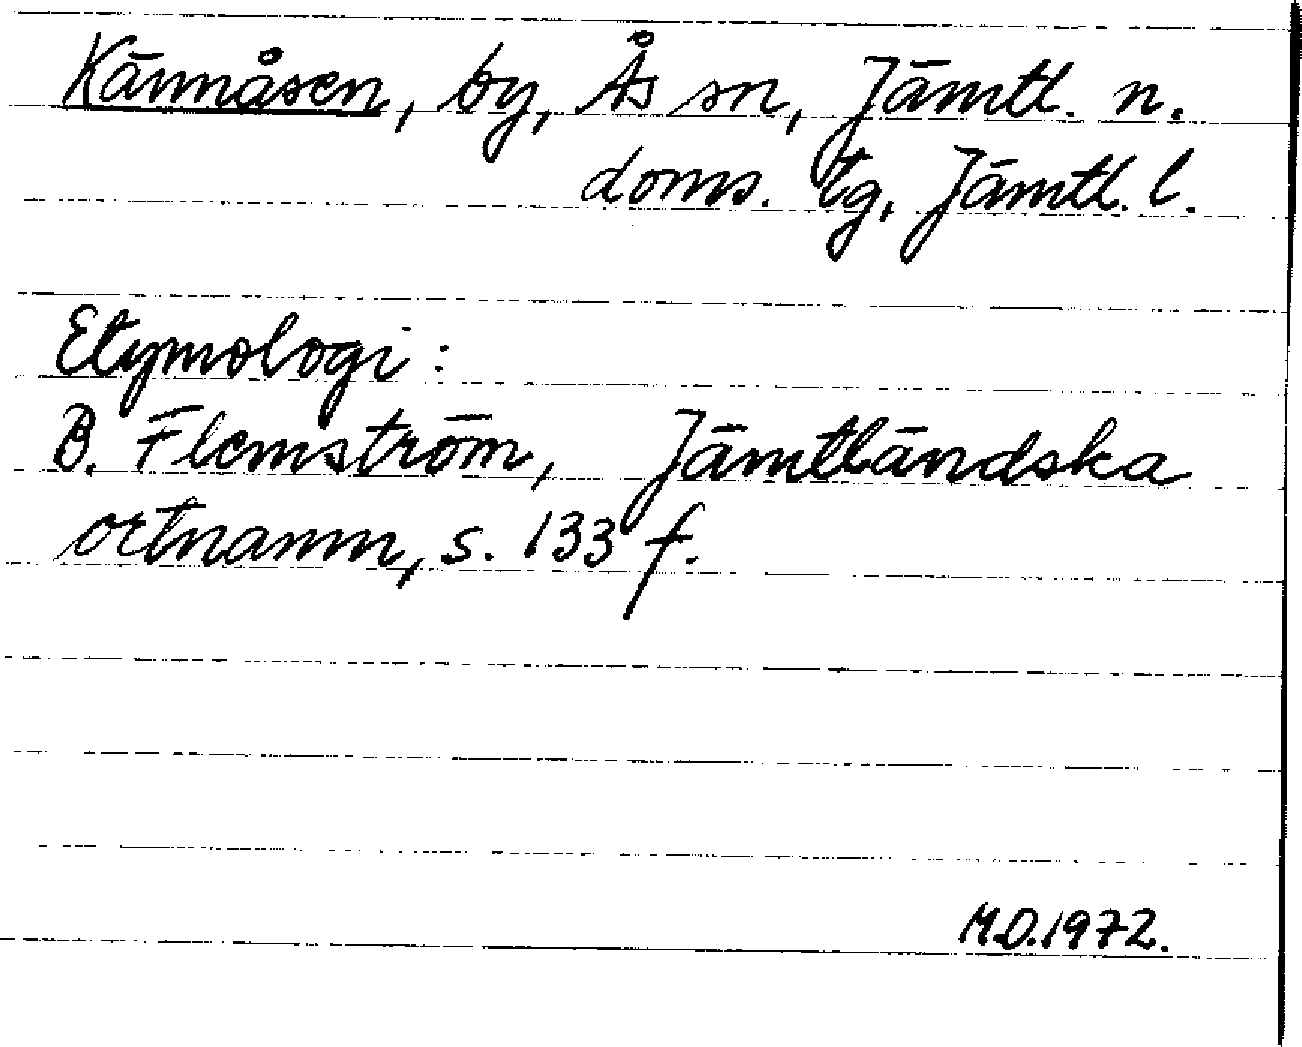 Kännåsen, by, Ås sn, Jämtl. n.
doms. tg, Jämtl. l.
Etymologi:
B. Flemström, Jämtländska
ortnamn, s. 133 f.
M.D.1972.